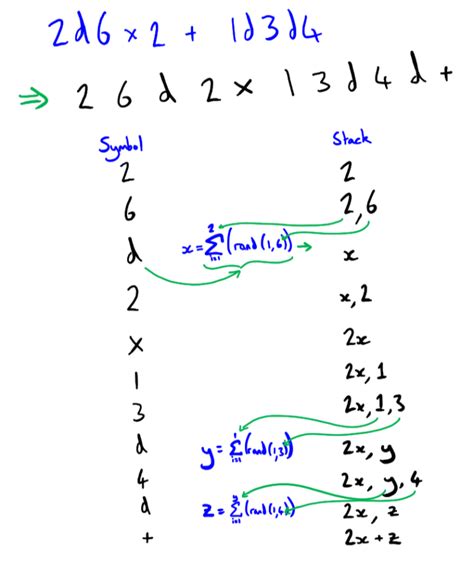 2d6 × 2 + 1d3d4
⇒ 2 6 d 2 × 1 3 d 4 d +
Symbol Stack
2 2
6 2,6
d x = 2∑i=1 (rand(1,6)) → x
2 x,2
× 2x
1 2x,1
3 2x,1,3
d y = 1∑i=1 (rand(1,3)) 2x, y
4 2x, y,4
d z = y∑i=1 (rand(1,4)) 2x, z
+ 2x+z